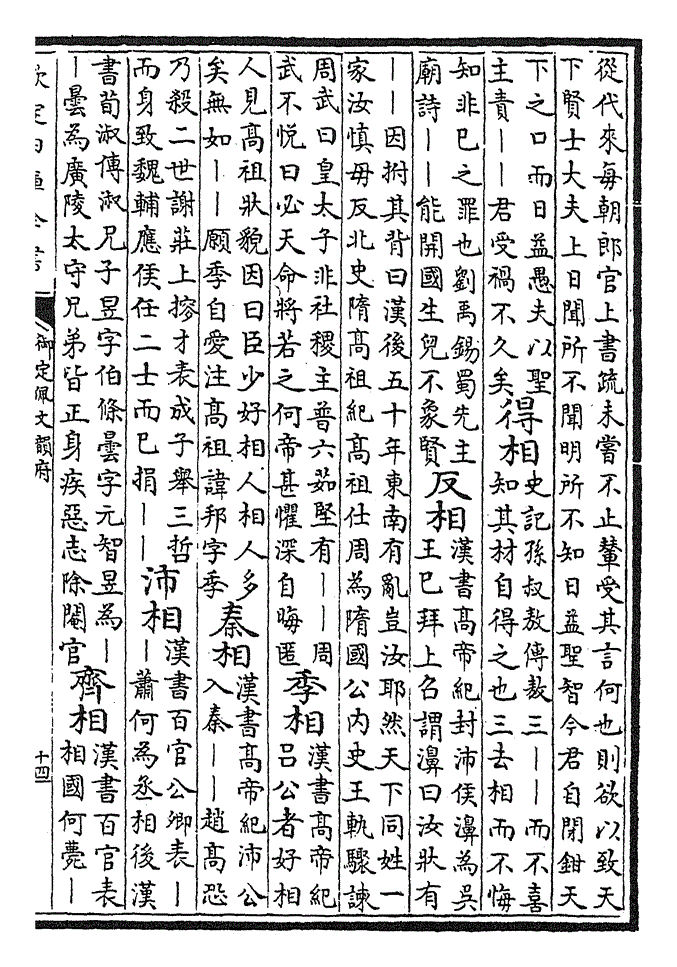 從代來每朝郎官上書疏未嘗不止輦受其言何也則欲以致天
下賢士大夫上日聞所不聞明所不知日益聖智今君自閉鉗天
下之口而日益愚夫以聖
主責丨丨君受禍不久矣
得相
史記孫叔敖傳敖三丨丨而不喜
知其材自得之也三去相而不悔
知非已之罪也劉禹錫蜀先主
廟詩丨丨能開國生兒不象賢
反相
漢書高帝紀封沛侯濞為吳
王已拜上召謂濞曰汝狀有
丨丨因拊其背曰漢後五十年東南有亂豈汝耶然天下同姓一
家汝慎毋反北史隋高祖紀高祖仕周為隋國公内史王軌驟諫
周武曰皇太子非社稷主普六茹堅有丨丨周
武不悅曰必天命將若之何帝甚懼深自晦匿
季相
漢書高帝紀
呂公者好相
人見高祖狀貌因曰臣少好相人相人多
矣無如丨丨願季自愛注高祖諱邦字季
秦相
漢書高帝紀沛公
入秦丨丨趙高恐
乃殺二世謝莊上搜才表成子舉三哲
而身致魏輔應侯任二士而已捐丨丨
沛相
漢書百官公卿表丨
丨蕭何為丞相後漢
書荀淑傳淑兄子昱字伯條曇字元智昱為丨
丨曇為廣陵太守兄弟皆正身疾惡志除閹官
齊相
漢書百官表
相國何薨丨
欽定四庫全書
御定佩文韻府
十四